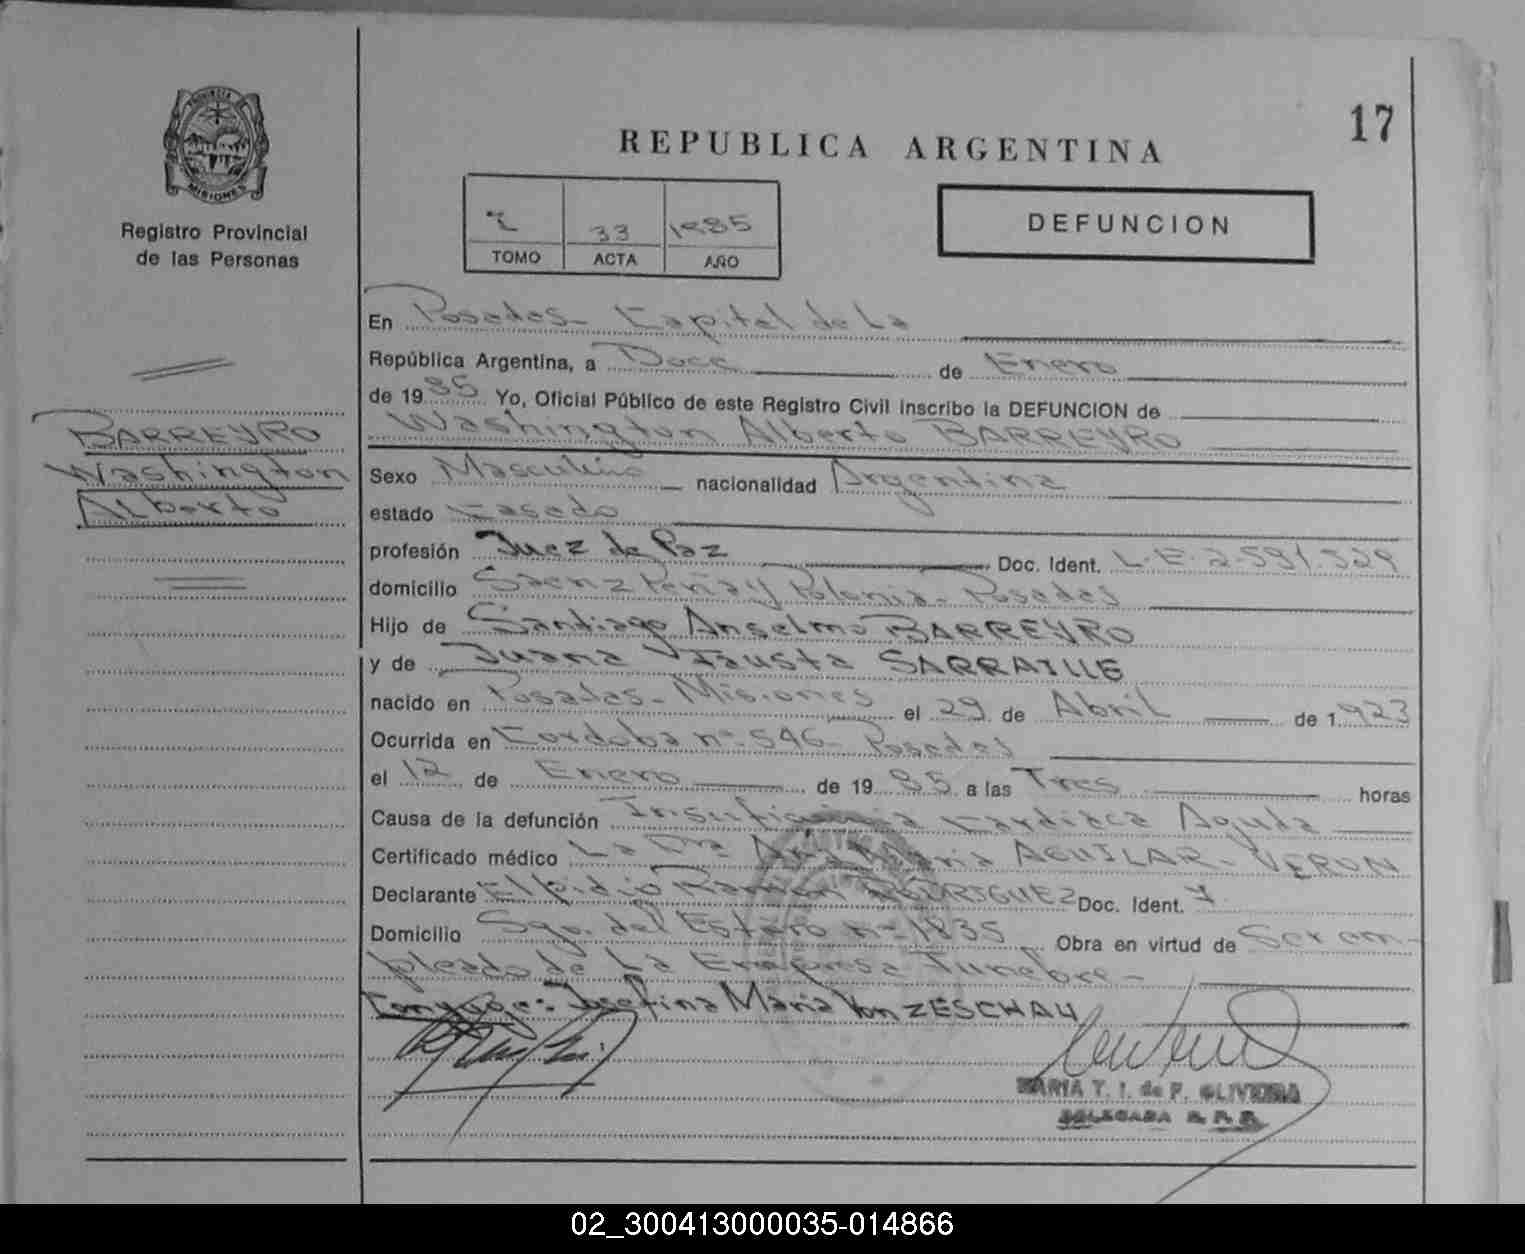 17
REPUBLICA ARGENTINA
PROVINCIA DE
MISIONES
Registro Provincial
de las Personas
33 1985
TOMO ACTA AÑO
DEFUNCION
BARREYRO
Washington
Alberto
En Posadas - Capital de La
República Argentina, a Doce de Enero
de 1985 Yo, Oficial Público de este Registro Civil inscribo la DEFUNCION de
Washington Alberto BARREYRO
Sexo Masculino nacionalidad Argentina
estado Casado
profesión Juez de Paz Doc. Ident. L.E. 2.591.529
domicilio Saenz Peña y Polonia - Posadas
Hijo de Santiago Anselmo BARREYRO
y de Juana Fausta SARRAILLE
nacido en Posadas - Misiones el 29 de Abril de 1.923
Ocurrida en Cordoba nº 546 - Posadas
el 12 de Enero de 1985 a las Tres horas
Causa de la defunción Insuficiencia Cardiaca Aguda
Certificado médico La Dra Ana Maria AGUILAR - VERON
Declarante Elpidio Ramon RODRIGUEZ Doc. Ident. 7
Domicilio Sgo. del Estero nº 1835 Obra en virtud de Ser em-
pleado de La Empresa Funebre -
Conyuge: Josefina Maria Von ZESCHAU
MARIA T. I. de F. OLIVEIRA
DELEGADA R. P. P.
02_300413000035-014866